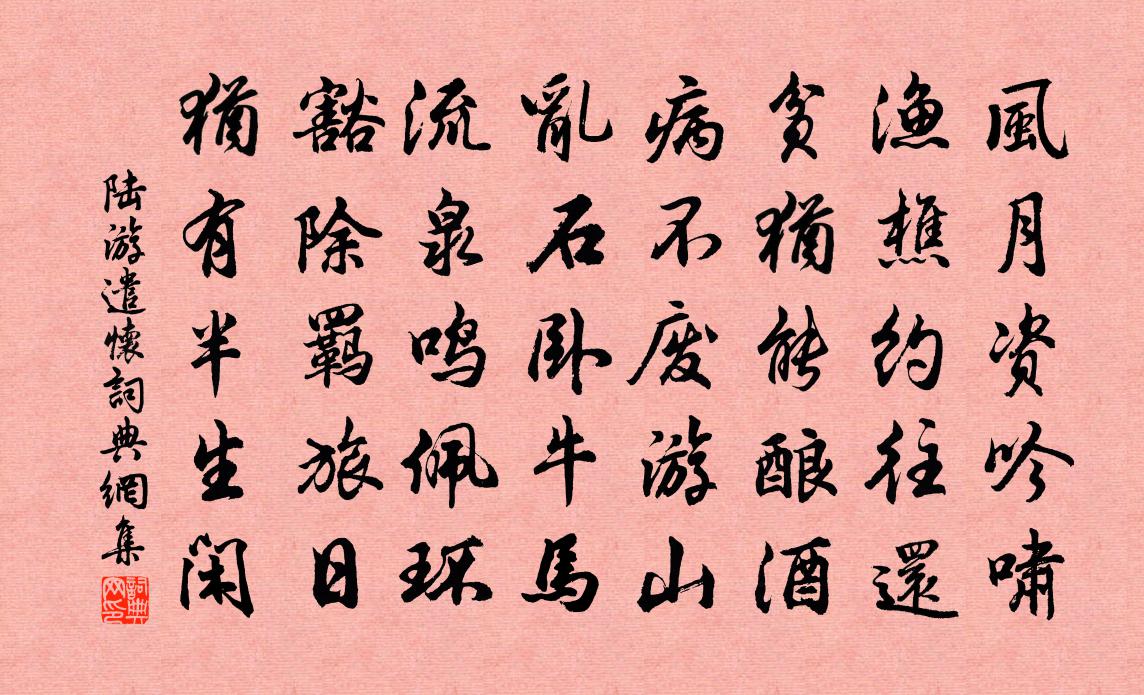 風月资吟嘯
漁樵約往還
貧猶能酿酒
病不废游山
亂石卧牛馬
流泉鸣佩环
豁除羈旅日
猶有半生闲
陆游遣懷詞典網集
詞典网印